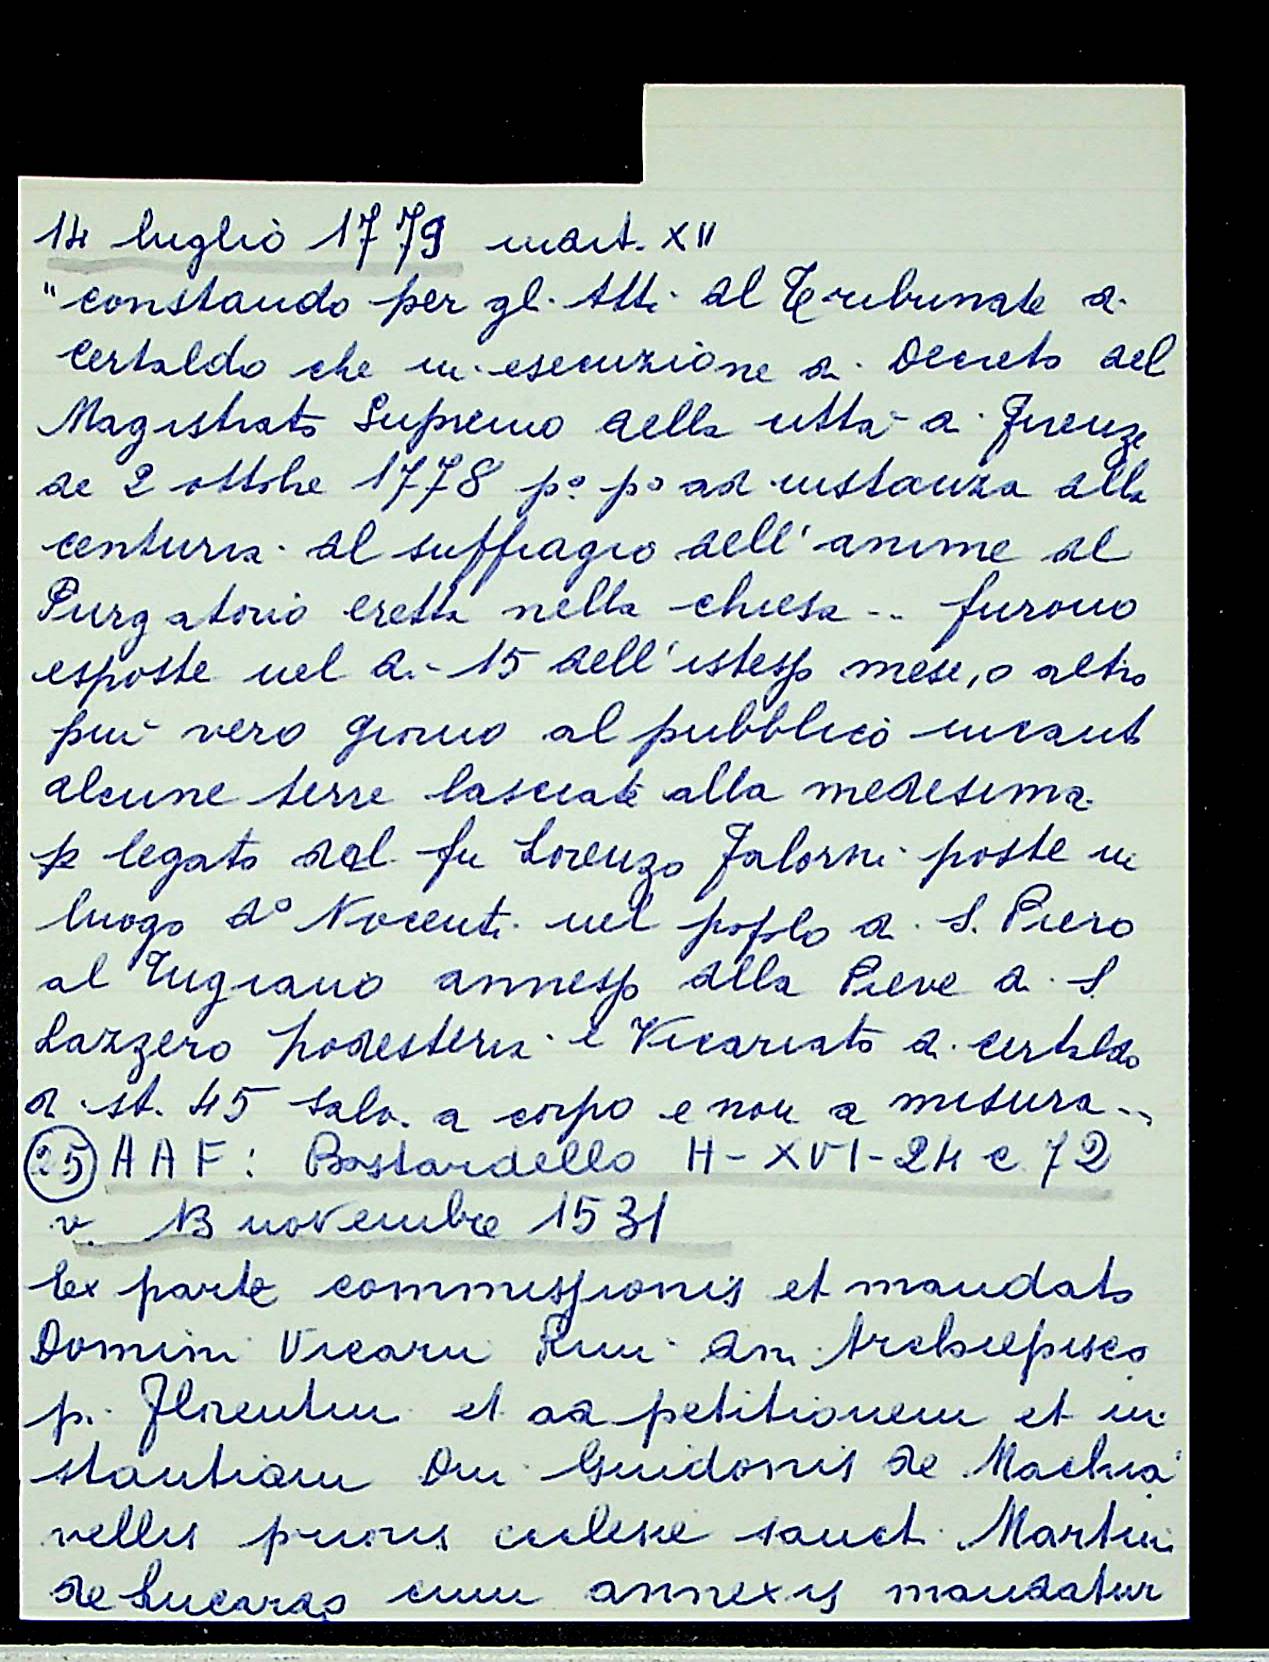 14 luglio 1779 mart. XII
"constando per gl. Atti. del Tribunale di
Certaldo che in esecuzione di Decreto del
Magistrato Supremo della città di Firenze
de 2 ottbre 1778 p.º pº ad instanza della
centuria del suffragio dell'anime del
Purgatorio eretta nella chiesa... furono
esposte nel dì 15 dell'istesso mese, o altro
più vero giorno al pubblico incanto
alcune terre lasciate alla medesima
p legato del fu Lorenzo Falorni poste in
luogo dº Nocenti nel popolo di S. Piero
al Tugiano annesso della Pieve di S.
Lazzero podesteria e Vicariato di Certaldo
di st. 45 salv. a corpo e non a misura...
25 AAF: Bastardello H-XVI-24 c 72
v. 13 novembre 1531
Ex parte commissionis et mandato
Domini Vicarii Rmi dni Archiepisco
pi Florentini et ad petitionem et in
stantiam Dni Guidonis de Machia
vellis prioris ecclesie sancti Martini
de Lucardo cum annexis mandatur